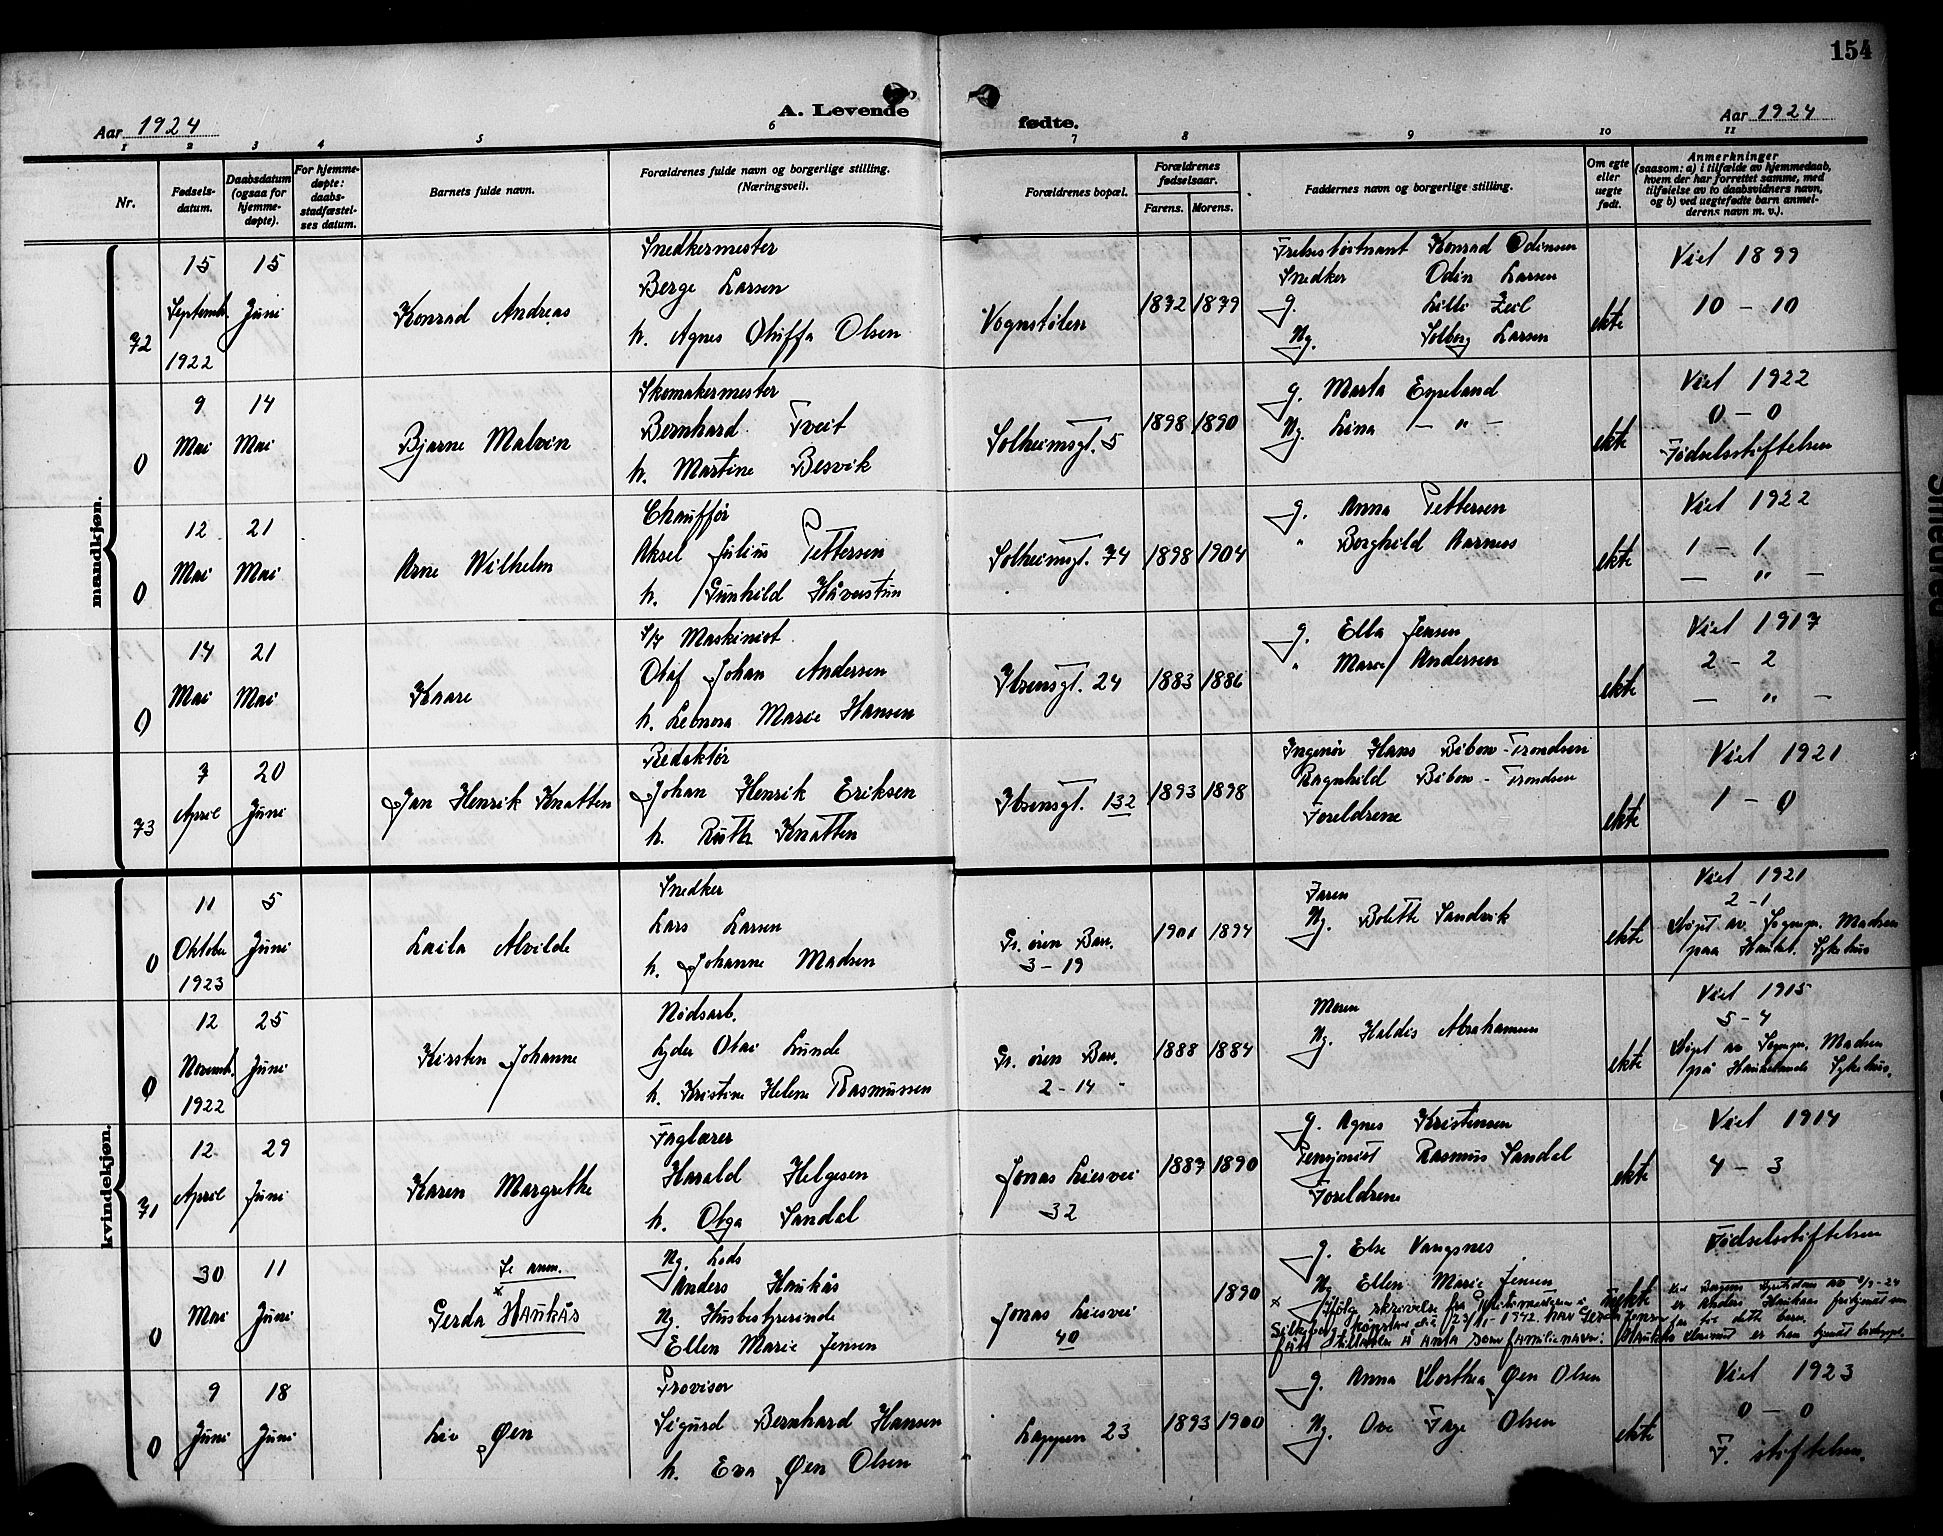 154
Aar 1924
A. Levende
fødte.
Aar 1924
1 2 3 4 5 6 7 8 9 10 11
Nr.
Fødsels-
datum.
Daabsdatum
(ogsaa for
hjemme-
døpte).
For hjemme-
døpte:
daabs-
stadfæstel-
ses datum.
Barnets fulde navn.
Forældrenes fulde navn og borgerlige stilling.
(Næringsvei).
Forældrenes bopæl.
Forældrenes
fødselsaar.
Farens. Morens.
Faddernes navn og borgerlige stilling.
Om egte
eller
uegte
født.
Anmerkninger
(saasom: a) i tilfælde av hjemmedaab,
hvem der har forrettet samme, med
tilføielse av to daabsvidners navn,
og b) ved uegtefødte barn anmel-
derens navn m. v.).
mandkjøn.
72
15
Septemb.
1922
15
Juni
Konrad Andreas
Snedkermester
Berge Larsen
h. Agnes Oluffa Olsen
Vognstølen
1872 1879
Frelsesløitnant Konrad Odinsen
Snedker Odin Larsen
g. Lilli Zeil
Ug. Solborg Larsen
ekte
Viet 1899
10 - 10
0
9
Mai
14
Mai
Bjarne Malvin
Skomakermester
Bernhard Tveit
h. Martine Besvik
Solheimsgt. 5
1898 1890
g. Marta Espeland
Ug. Lina - " -
ekte
Viet 1922
0 - 0
Fødselsstiftelsen
0
12
Mai
21
Mai
Arne Wilhelm
Chauffør
Aksel Julius Pettersen
h. Gunhild Håvustun
Solheimsgt. 74
1898 1904
g. Anna Pettersen
" Borghild Aarnes
ekte
Viet 1922
1 - 1
- " -
0
14
Mai
21
Mai
Kaare
S/y Maskinist
Olaf Johan Andersen
h. Leonora Marie Hansen
Ibsensgt. 24
1883 1886
g. Ella Jensen
" Marie Andersen
ekte
Viet 1917
2 - 2
- " -
73
7
April
20
Juni
Jan Henrik Knatten
Redaktør
Johan Henrik Eriksen
h. Ruth Knatten
Ibsensgt. 132
1893 1898
Ingeniør Hans Bibow-Trondsen
Ragnhild Bibow-Trondsen
Foreldrene
ekte
Viet 1921
1 - 0
kvindekjøn.
0
11
Oktober
1923
5
Juni
Laila Alvilde
Snedker
Lars Larsen
h. Johanne Madsen
Gr. ören Bar.
3 - 19
1901 1894
Faren
Ug. Bolette Sandvik
ekte
Viet 1921
2 - 1
Døpt av Sognpr. Madsen
paa Haukel. Sykehus
0
12
Novemb.
1922
25
Juni
Kirsten Johanne
Nødsarb.
Lyder Olai Lunde
h. Kristine Helene Rasmussen
Gr. ören Bar.
2 - 14
1888 1884
Moren
Ug. Haldis Abrahamsen
ekte
Viet 1915
5 - 4
Døpt av Sognpr. Madsen
på Haukelands Sykehus.
71
12
April
29
Juni
Karen Margrethe
Faglærer
Harald Helgesen
h. Olga Sandal
Jonas Liesvei
32
1887 1890
g. Agnes Kristensen
Pensjonist Rasmus Sandal
Foreldrene
ekte
Viet 1914
4 - 3
0
30
Mai
11
Juni
Se anm.
Gerda Haukås
Ug. Lods
Anders Haukås
Ug. Husbestyrerinde
Ellen Marie Jensen
Jonas Liesvei
40
1890
g. Else Vangsnes
Ug. Ellen Marie Jensen
Ifølge skrivelse fra
23/11-1942 har Gerda Jensen
fått tillatelse å anta som familienavn: Haukås
uekte
Fødselsstiftelsen
er Anders Haukaas frikjent som
far til dette barn.
0
9
Juni
18
Juni
Liv Øen
Provisor
Sigurd Bernhard Hansen
h. Eva Øen Olsen
Lappen 23
1893 1900
g. Anna Dorthea Øen Olsen
Ug. Ove Tage Olsen
ekte
Viet 1923
0 - 0
F. stiftelsen.